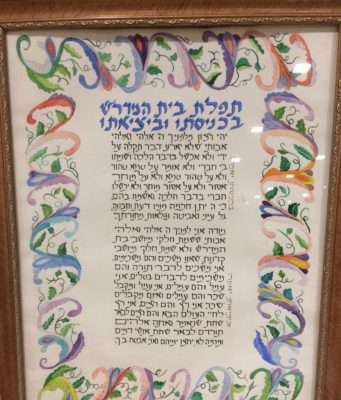 תפלת בית המדרש
בכניסתו וביציאתו
יהי רצון מלפניך ה׳ אלהי ואלהי
אבותי, שלא יארע דבר תקלה על
ידי ולא אכשל בדבר הלכה וישמחו
בי חברי ולא אומר על טמא טהור
ולא על טהור טמא ולא על מותר
אסור ולא על אסור מותר ולא יכשלו
חברי בדבר הלכה ואשמח בהם,
כי ה׳ יתן חכמה מפיו דעת ותבונה,
גל עיני ואביטה נפלאות מתורתך
מודה אני לפניך ה׳ אלהי ואלהי
אבותי, ששמת חלקי מיושבי בית
המדרש ולא שמת חלקי מיושבי
קרנות, שאני משכים והם משכימים,
אני משכים לדברי תורה והם
משכימים לדברים בטלים, אני
עמל והם עמלים, אני עמל ומקבל
שכר והם עמלים ואינם מקבלים
שכר, אני רץ והם רצים, אני רץ
לחיי העולם הבא והם רצים לבאר
שחת, שנאמר ואתה אלהים
תורדם לבאר שחת, אנשי דמים
ומרמה לא יחצו ימיהם ואני אבטח בך.